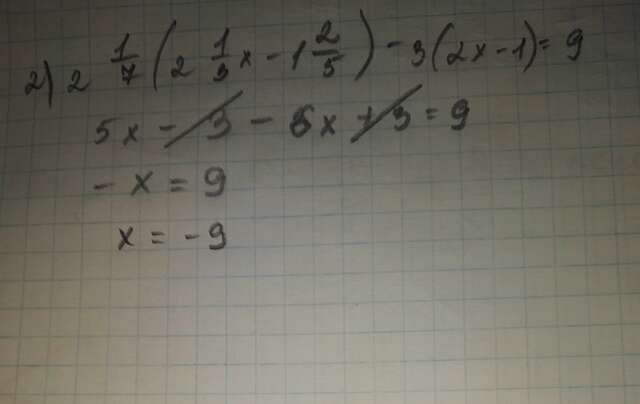 2) 2 1/7 (2 1/3 x - 1 2/5) - 3(2x - 1) = 9
5x - 3 - 6x + 3 = 9
- x = 9
x = - 9